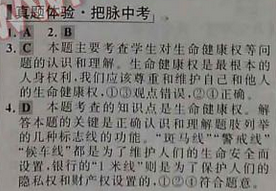 真题体验·把脉中考
1. A 2. B
3. C 本题主要考查学生对生命健康权等问
题的认识和理解。生命健康权是最根本的
人身权利,我们应该尊重和维护自己和他人
的生命健康权,①③观点错误,②④正确。
4. D 本题考查的知识点是生命健康权。解
答本题的关键是正确认识和理解题肢列举
的几种标志线的功能。“斑马线”“警戒线”
“候车线”都是为了维护人们的生命安全而
设置,银行的“1米线”则是为了保护人们的
隐私权和财产权设置的,①②④符合题意。